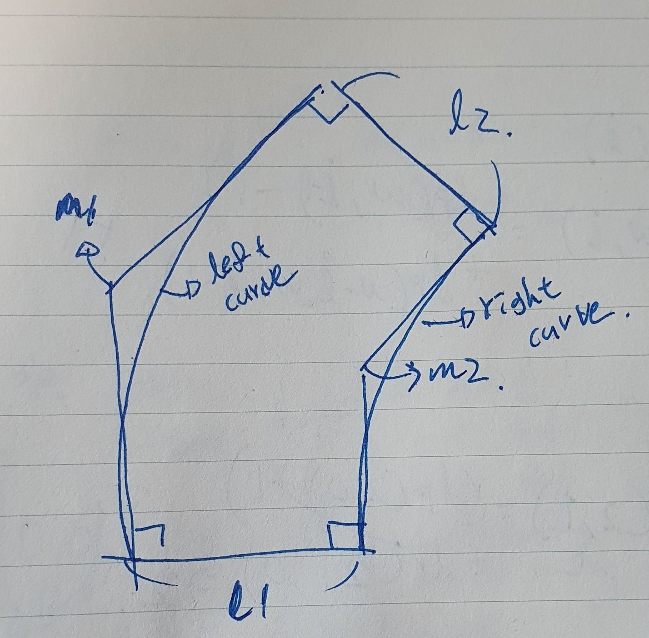 l2.
m1
left
curve
right
curve.
m2.
l1